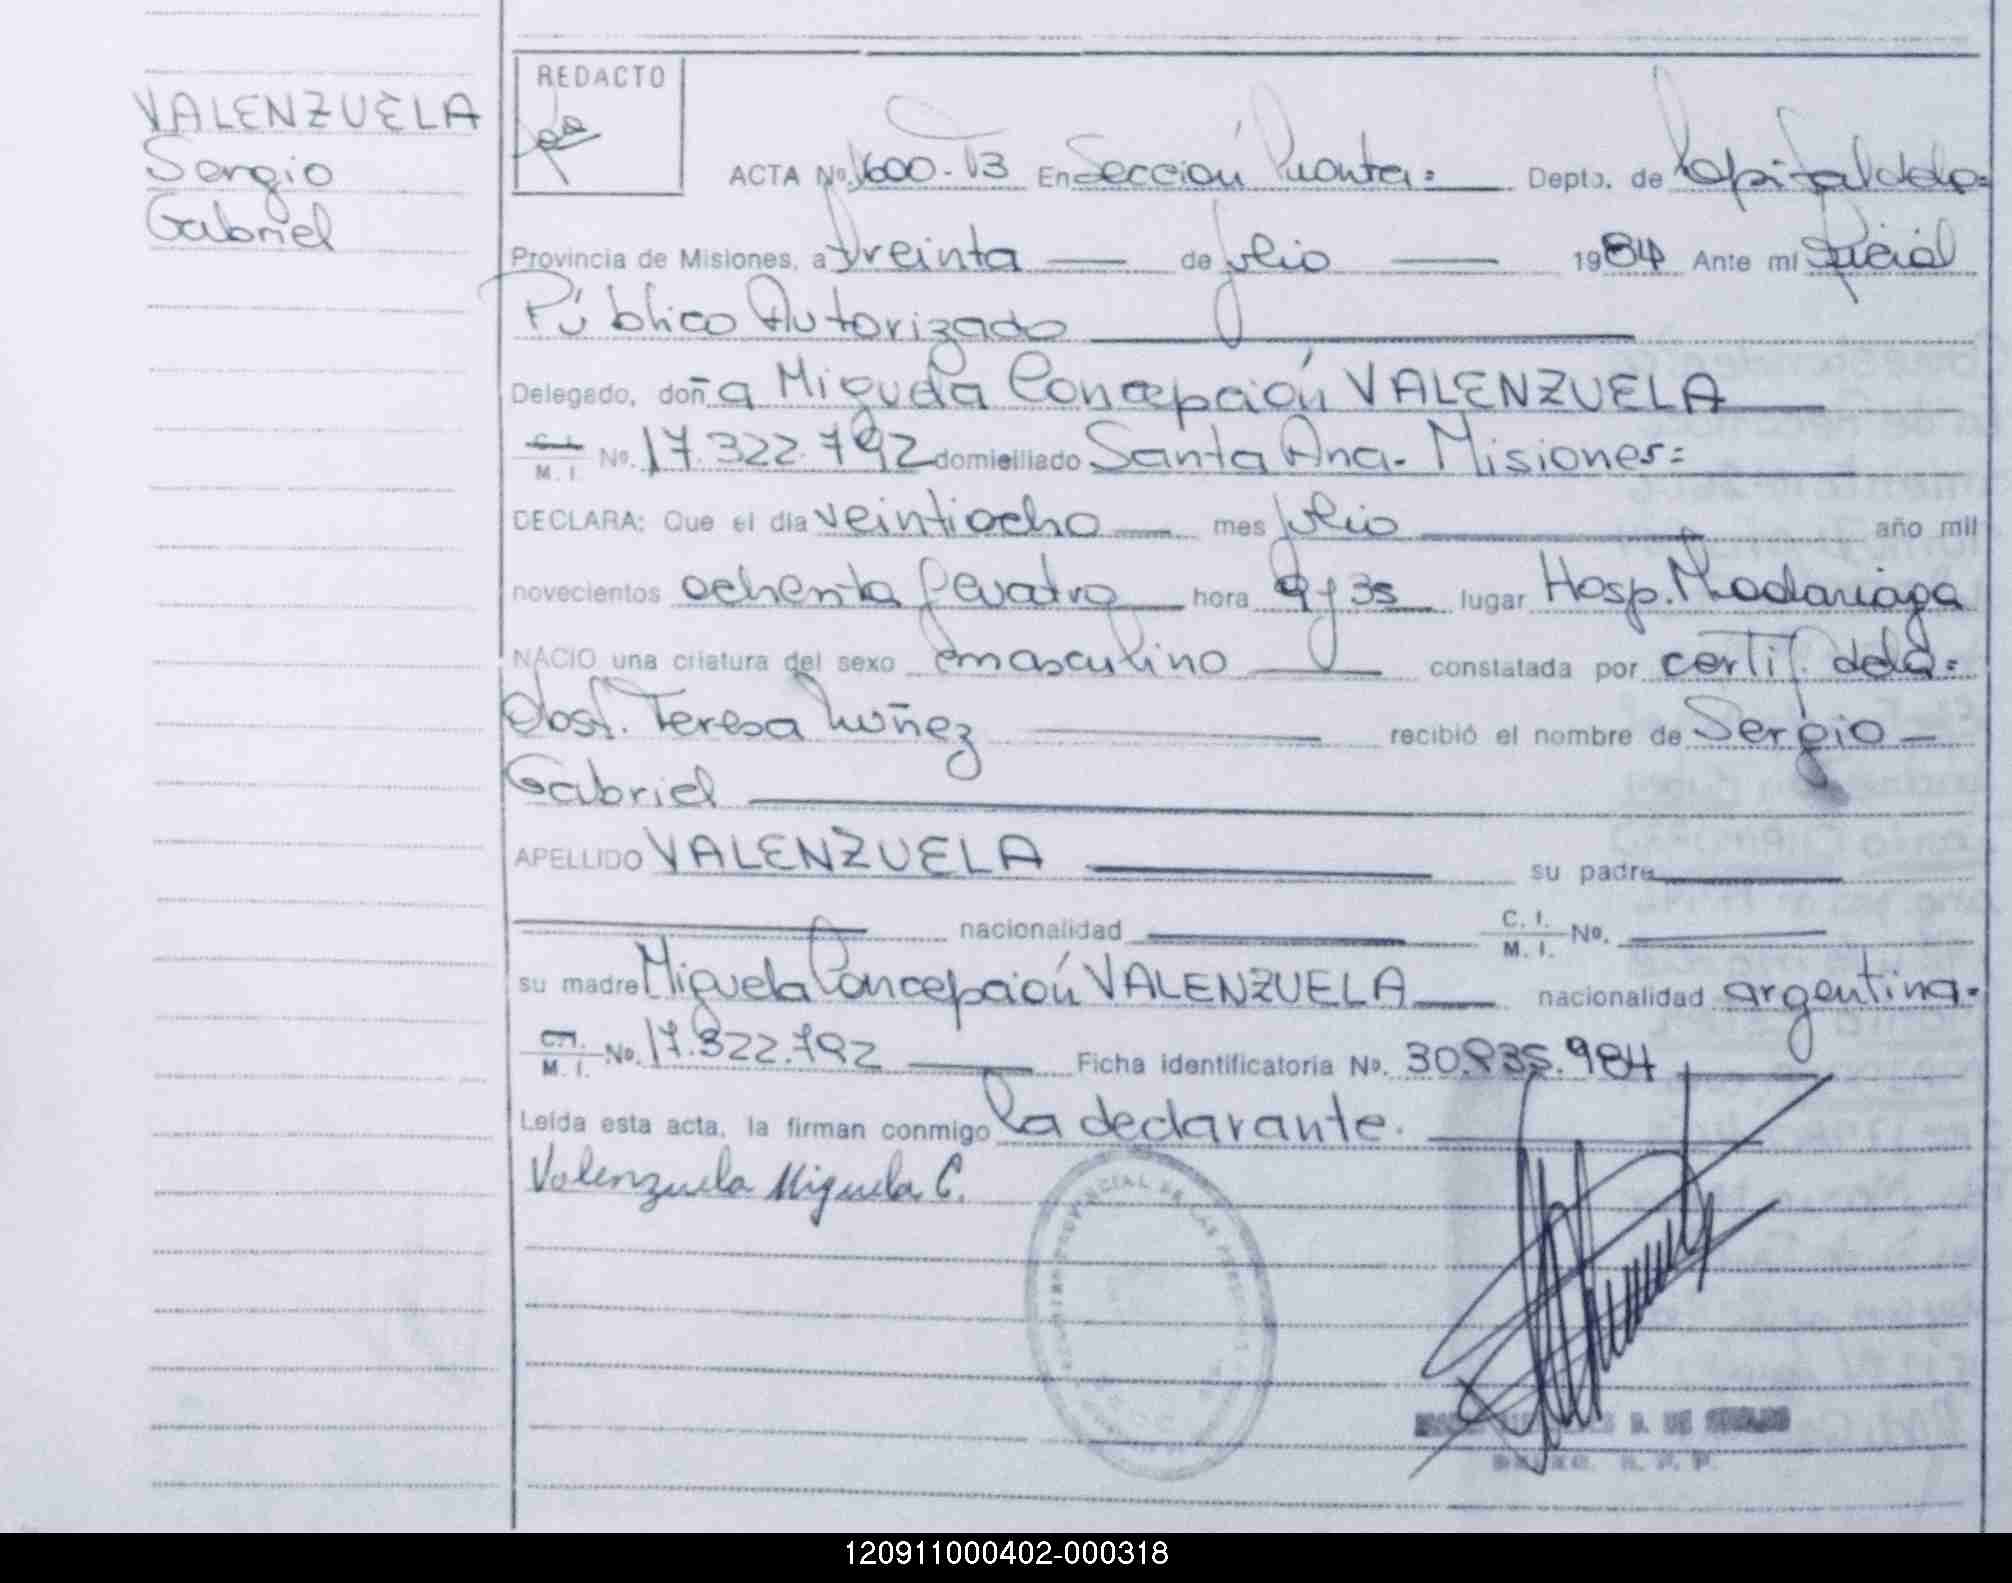 VALENZUELA
Sergio
Gabriel
REDACTO
ACTA Nº 1600-T3 En Sección Cuarta= Depto. de Capital dela=
Provincia de Misiones, a treinta de julio 1984 Ante mi Oficial
Público Autorizado
Delegado, doña Miguela Concepción VALENZUELA
C. I. M. I. Nº. 17.322.792 domiciliado Santa Ana- Misiones=
DECLARA: Que el día veintiocho mes julio año mil
novecientos ochenta y cuatro hora 9 y 35 lugar Hosp. Madariaga
NACIO una criatura del sexo masculino constatada por certif. dela=
Obst. Teresa Nuñez recibió el nombre de Sergio
Gabriel
APELLIDO VALENZUELA su padre
nacionalidad C. I. M. I. Nº.
su madre Miguela Concepción VALENZUELA nacionalidad argentina.
C. I. M. I. Nº. 17.322.792 Ficha identificatoria Nº. 30.835.984
Leída esta acta, la firman conmigo la declarante.
Valenzuela Miguela C.
PROVINCIAL DE LAS PERSONAS
120911000402-000318